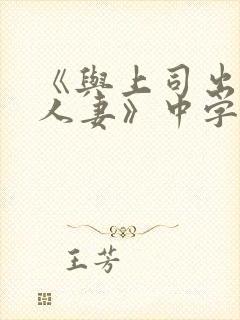 《與上司出
人妻》中字
王芳